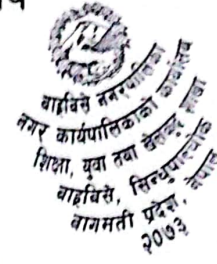 बाह्रविसे नगरपालिका
नगर कार्यपालिकाको कार्यालय
शिक्षा, युवा तथा खेलकुद शाखा
बाह्रविसे, सिन्धुपाल्चोक
बागमती प्रदेश, नेपाल
२०७३